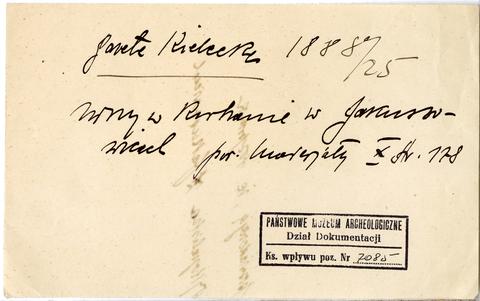 Gazeta Kielecka 1888/25
w Kurhanie w Jakuszo-
wicach por. Materjały X str. 178
PAŃSTWOWE MUZEUM ARCHEOLOGICZNE
Dział Dokumentacji
Ks. wpływu poz. Nr 7085